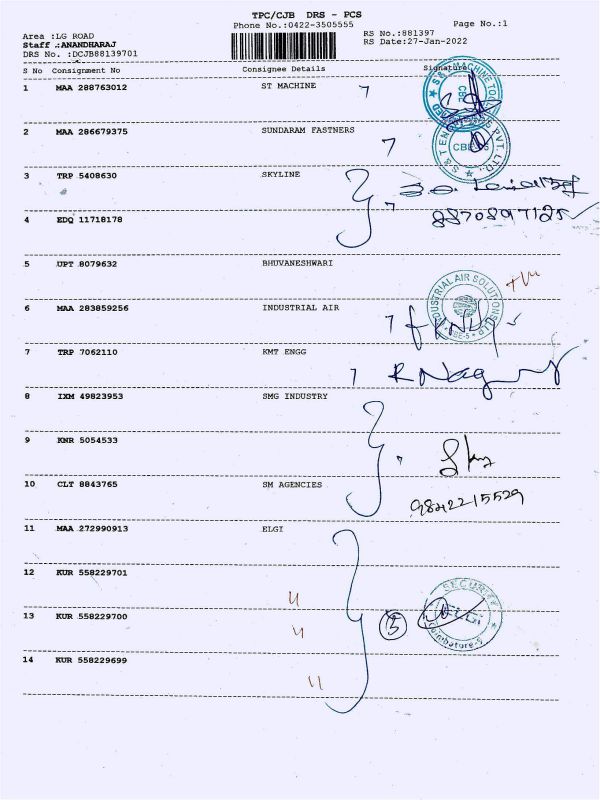 TPC/CJB DRS - PCS
Phone No.:0422-3505555
Page No.:1
Area :LG ROAD
RS No.:881397
Staff .:ANANDHARAJ
RS Date:27-Jan-2022
DRS No. :DCJB88139701
S No Consignment No Consignee Details Signature
1 MAA 288763012 ST MACHINE
2 MAA 286679375 SUNDARAM FASTNERS
3 TRP 5408630 SKYLINE
8870897125
4 EDQ 11718178
5 UPT 8079632 BHUVANESHWARI
6 MAA 283859256 INDUSTRIAL AIR
INDUSTRIAL AIR SOLUTIONS LLP
CBE-5
7 TRP 7062110 KMT ENGG
R Nagu
8 IXM 49823953 SMG INDUSTRY
9 KNR 5054533
10 CLT 8843765 SM AGENCIES
9842215529
11 MAA 272990913 ELGI
12 KUR 558229701
13 KUR 558229700
5
SECURITY
ELGi
Coimbatore-5
14 KUR 558229699